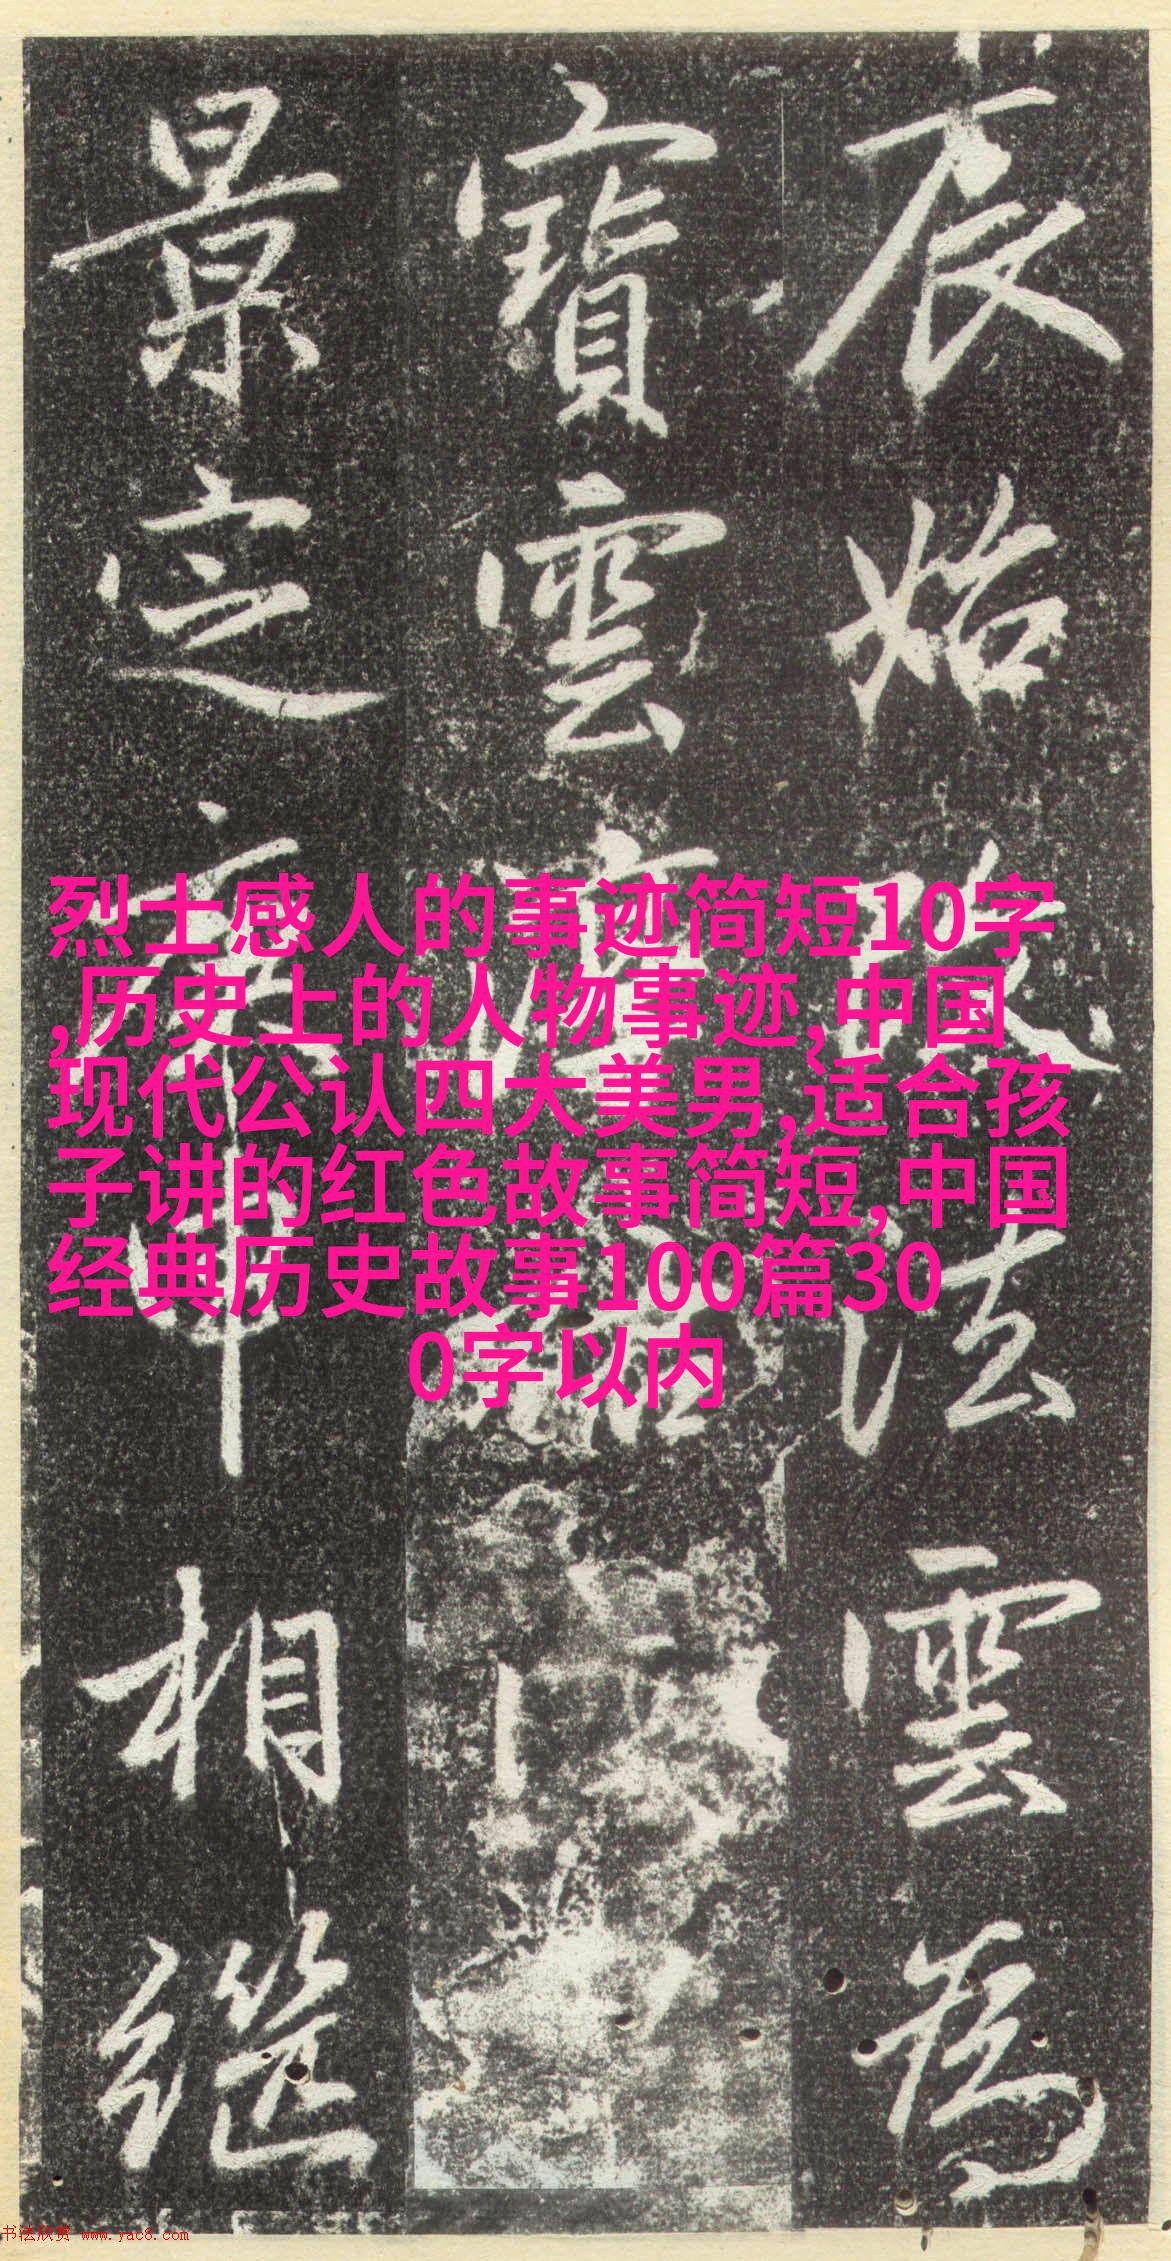 辰始改法雲為
寶雲
景定庚申相繼
烈士感人的事迹简短10字
,历史上的人物事迹,中国
现代公认四大美男,适合孩
子讲的红色故事简短,中国
经典历史故事100篇30
0字以内
书法欣赏 www.yac8.com